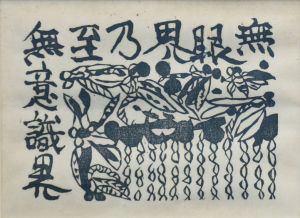 無眼界乃至
無意識界